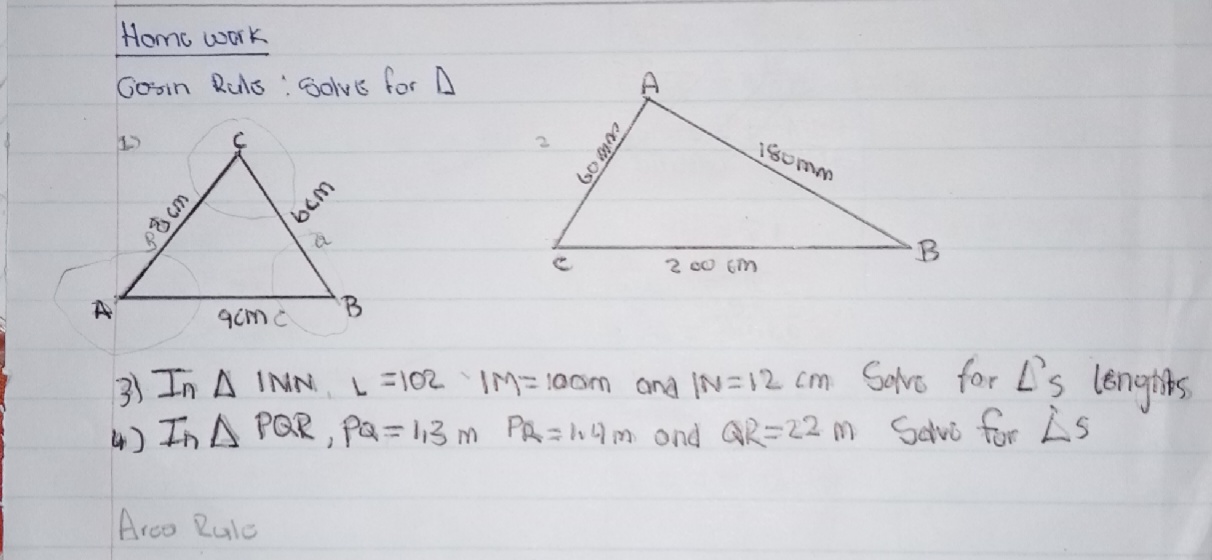 Home work
Cosin Rule : Solve for Δ
1)
C
8cm
6cm
a
A
9cm c
B
2
A
60mm
180mm
C
200 cm
B
3) In Δ INN, L = 102 IM = 100m and IN = 12 cm Solve for L's lenghts
4) In Δ PQR, PQ = 1,3 m PR = 1.4 m and QR = 22 m Solve for Δs
Area Rule